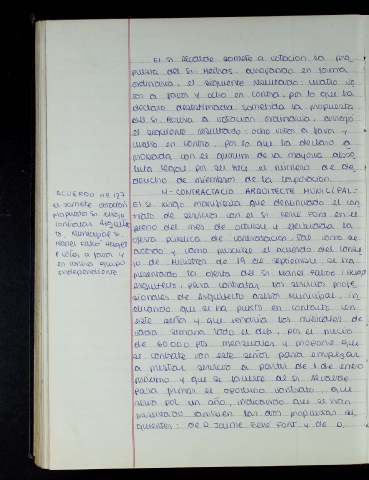 El Sr. Alcalde somete a votación la pro-
puesta del Sr. Hechos, arrojando en forma
ordinaria, el siguiente resultado: cuatro vo-
tos a favor y ocho en contra, por lo que la
declara desestimada. Sometida la propuesta
del Sr. a votación ordinaria, arrojó
el siguiente resultado: ocho votos a favor y
cuatro en contra, por lo que la declara a-
probada con el quorum de la mayoría abso-
luta legal por ser trece el número de de-
derecho de miembros de la Corporación.
ACUERDO nº 127
se somete votación
propuesta Sr.
contratar Arquitec-
to Municipal Sr.
Manel
8 votos a favor y
4 en contra grupo
independiente
4- CONTRACTACIO ARQUITECTE MUNICIPAL:
El Sr. manifiesta que denunciado el con-
trato de servicios con el Sr. Bene Font en el
pleno del mes de octubre y efectuada la
oferta pública de contratación por este a-
cuerdo y como prescribe el acuerdo del Conse-
jo de Ministros de 19 de septiembre, se ha
presentado la oferta del Sr. Manel
Arquitecto, para contratar los servicios profe-
sionales de Arquitecto asesor Municipal, in-
dicando que se ha puesto en contacto con
este señor y que vendría los miércoles de
cada semana todo el día, por el precio
de 60.000 pts. mensuales y propone que
se contrate con este señor para empezar
a prestar servicio a partir de 1 de enero
próximo y que se faculte al Sr. Alcalde
para firmar el oportuno contrato, que
sería por un año, indicando que se han
presentado también las dos propuestas si-
guientes: de D. Jaume Bene Font y de D.